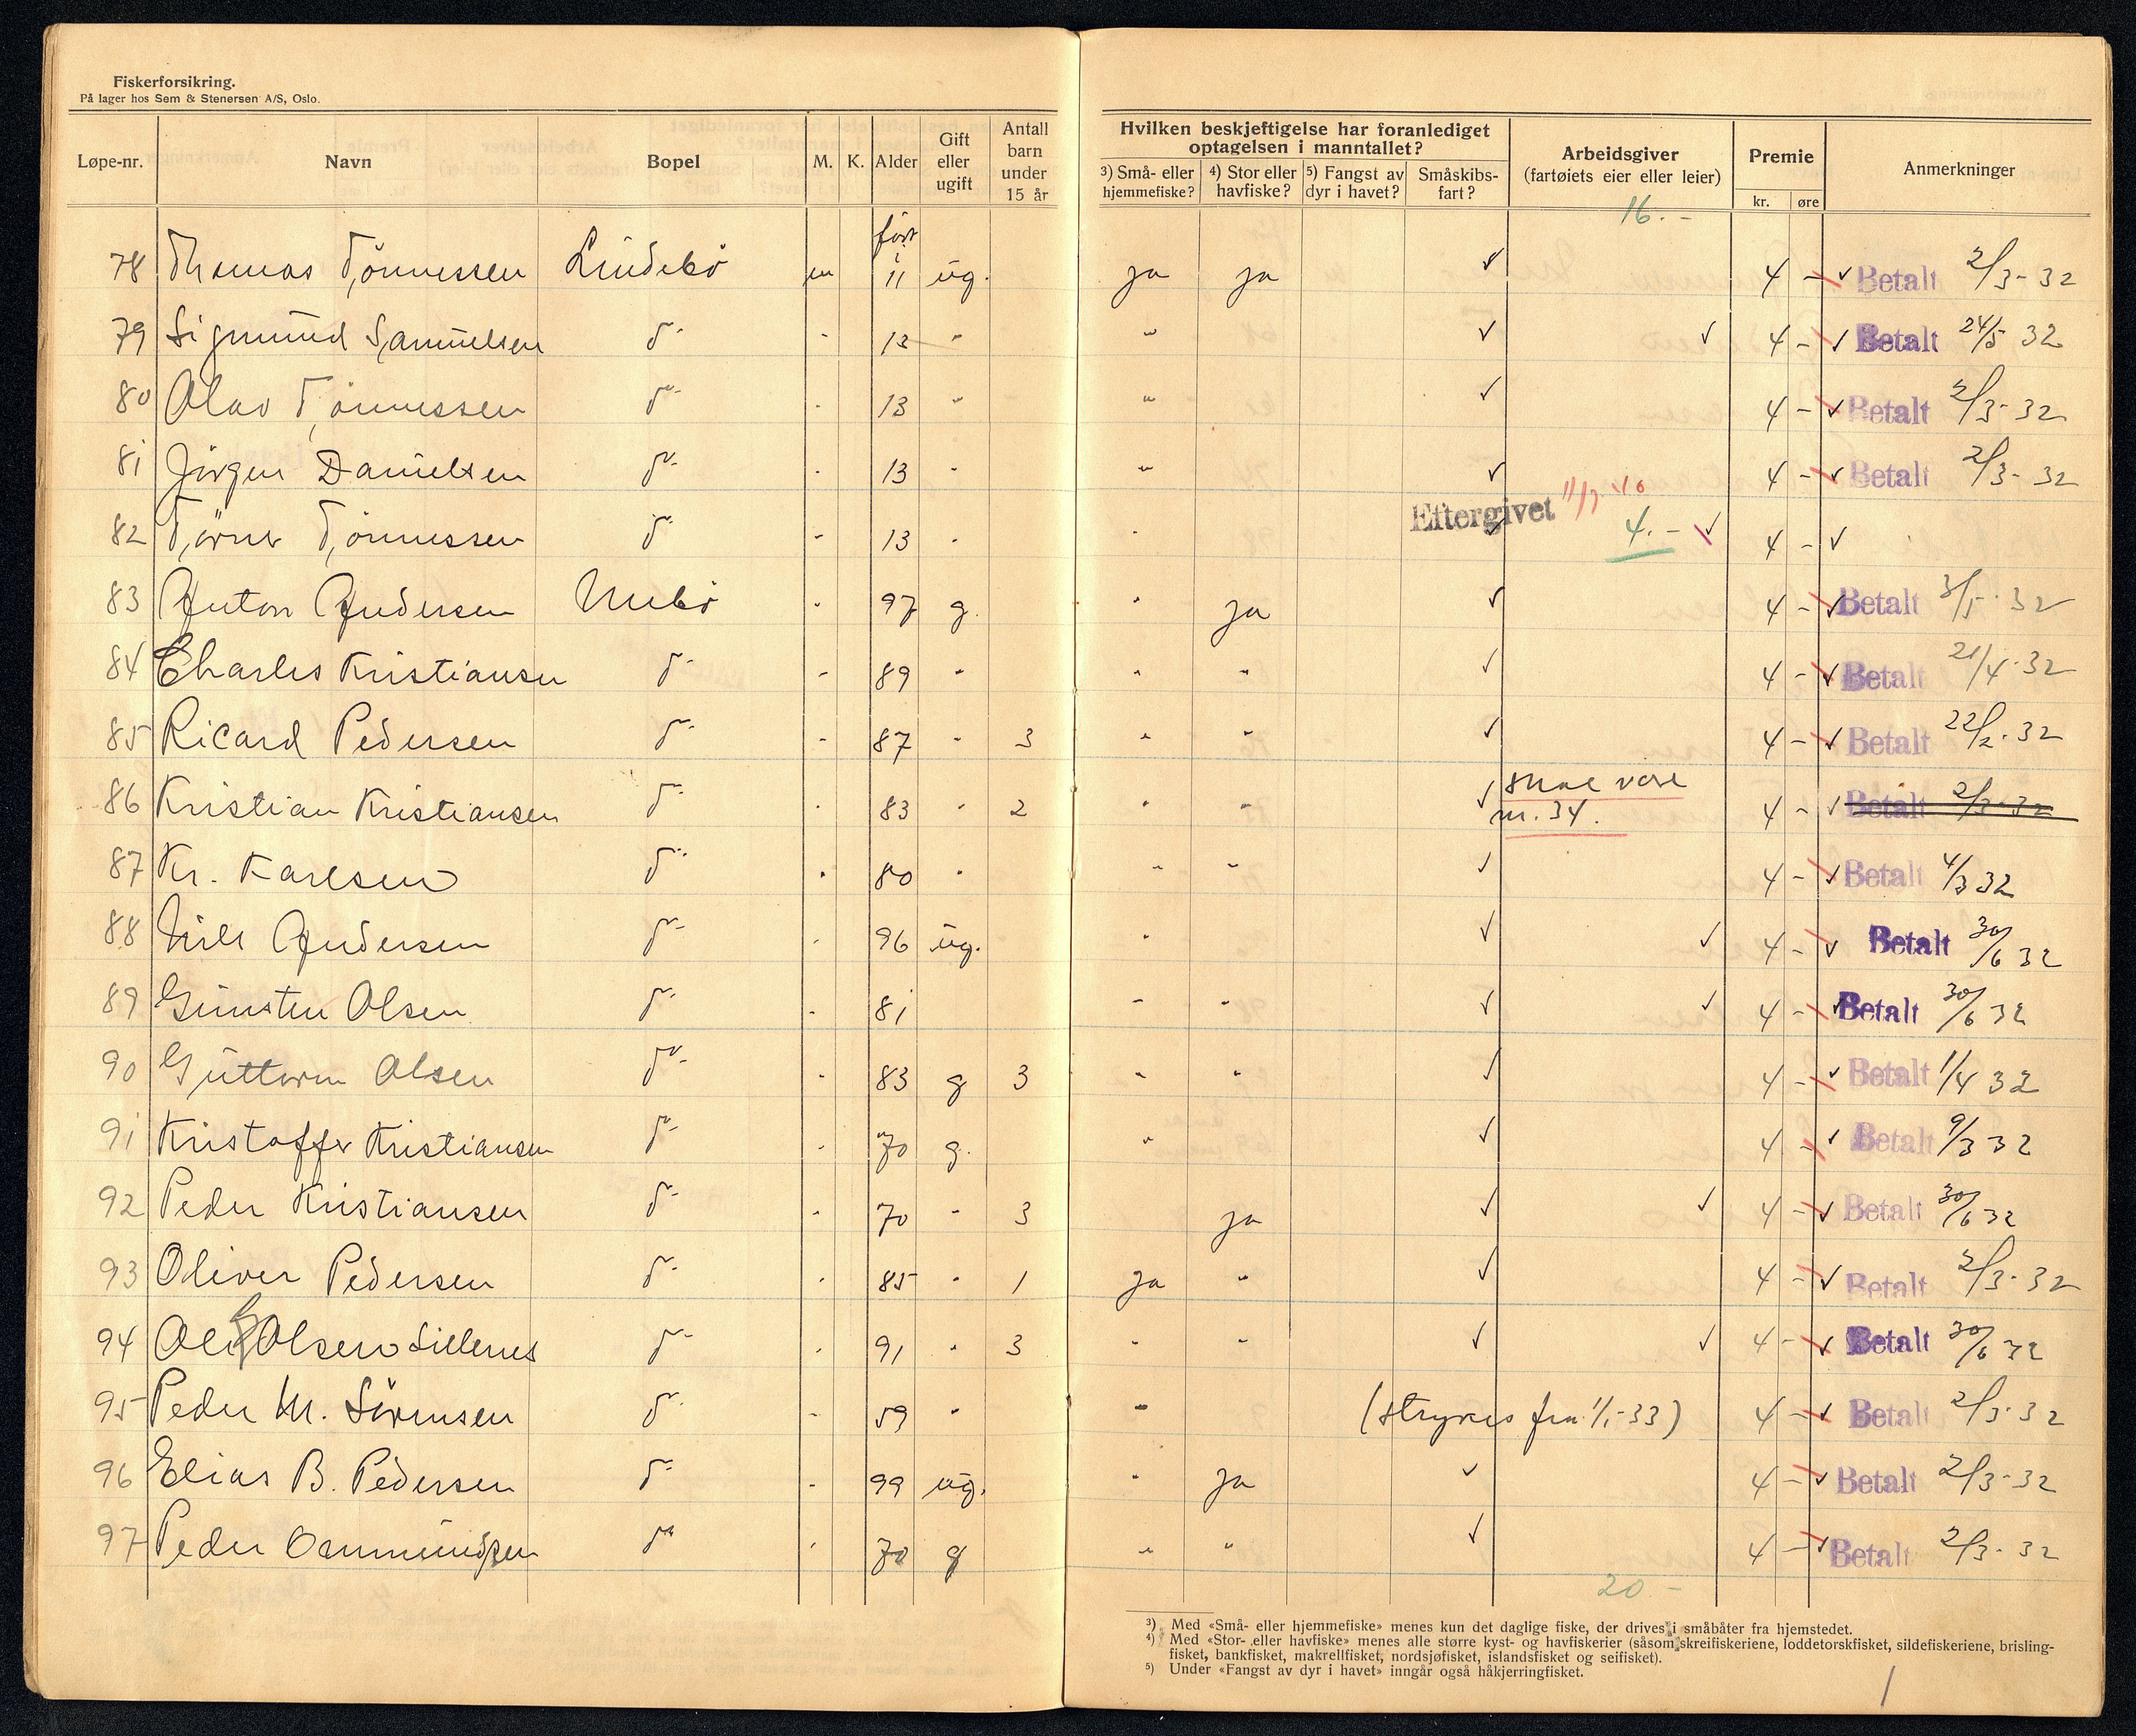 Fiskerforsikring.
På lager hos Sem & Stenersen A/S, Oslo.
Løpe-nr. Navn Bopel M. K. Alder Gift eller ugift Antall barn under 15 år
Hvilken beskjeftigelse har foranlediget optagelsen i manntallet?
3) Små- eller hjemmefiske? 4) Stor eller havfiske? 5) Fangst av dyr i havet? Småskibs-fart? Arbeidsgiver (fartøiets eier eller leier) Premie kr. øre Anmerkninger
16.-
født i
78 Thomas Tönnessen Lindebö m 11 ug. ja ja ✓ 4 - ✓ Betalt 2/3-32
79 Sigmund Samuelsen do - 13 " " ✓ ✓ 4 - ✓ Betalt 24/5 32
80 Olav Tönnessen do - 13 " " ✓ 4 - ✓ Betalt 2/3-32
81 Jörgen Danielsen do - 13 " " ✓ 4 - ✓ Betalt 2/3-32
Eftergivet
82 Tönnessen do - 13 " " ✓ 4.- ✓ 4 - ✓
83 Anton Andersen Ulebö " 97 g. " ja ✓ 4 - ✓ Betalt 3/5-32
84 Charles Kristiansen do - 89 " " " ✓ 4 - ✓ Betalt 21/4-32
85 Ricard Pedersen do - 87 " 3 " " ✓ 4 - ✓ Betalt 22/2-32
86 Kristian Kristiansen do " 83 " 2 " " ✓ skal være 4 - ✓ Betalt 2/3-32
nr. 34.
87 Kr. Karlsen do " 80 " " " ✓ 4 - ✓ Betalt 4/3 32
88 Nils Andersen do " 96 ug. " ✓ ✓ 4 - ✓ Betalt 30/6 32
89 Gunsten Olsen do " 81 " " ✓ ✓ 4 - ✓ Betalt 30/6 32
90 Guttorm Olsen do " 83 g 3 " " ✓ 4 - ✓ Betalt 1/4 32
91 Kristoffer Kristiansen do " 70 g. " ✓ 4 - ✓ Betalt 9/3 32
92 Peder Kristiansen do " 70 " 3 ja ✓ ✓ 4 - ✓ Betalt 30/6 32
93 Oliver Pedersen do " 85 " 1 ja " ✓ 4 - ✓ Betalt 2/3-32
94 Ole G Olsen Lillenes do " 91 " 3 " " ✓ ✓ 4 - ✓ Betalt 30/6 32
95 Peder M. Sörensen do " 59 " " (strykes fra 1/1-33) 4 - ✓ Betalt 2/3-32
96 Elias B. Pedersen do " 99 ug. " ja ✓ 4 - ✓ Betalt 2/3-32
97 Peder Ommundsen do " 70 g " " ✓ 4 - ✓ Betalt 2/3-32
20 -
3) Med «Små- eller hjemmefiske» menes kun det daglige fiske, der drives i småbåter fra hjemstedet.
4) Med «Stor- eller havfiske» menes alle større kyst- og havfiskerier (såsom skreifiskeriene, loddetorskfisket, sildefiskeriene, brisling-
fisket, bankfisket, makrellfisket, nordsjøfisket, islandsfisket og seifisket).
5) Under «Fangst av dyr i havet» inngår også håkjerringfisket.